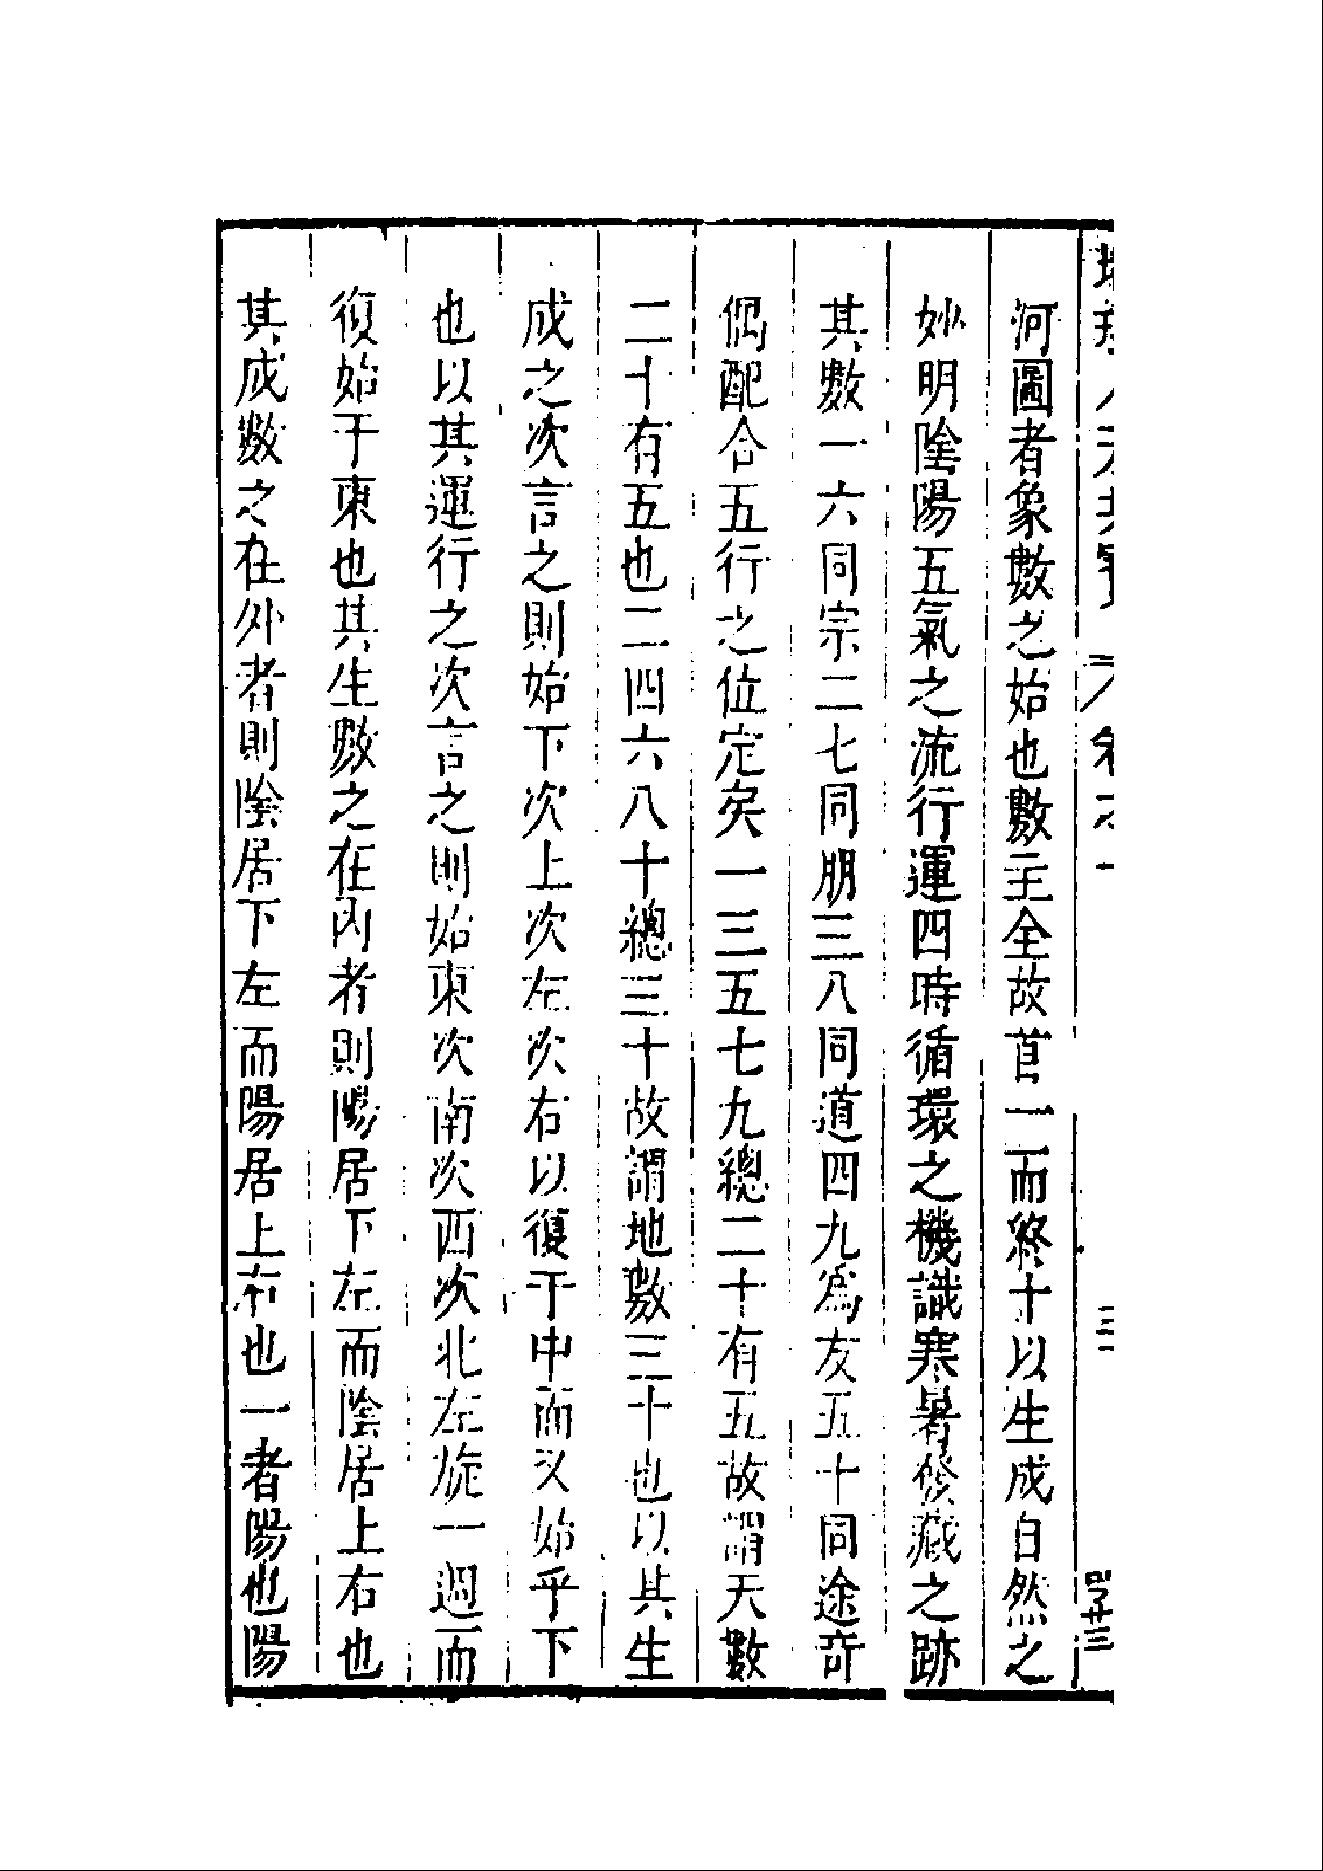 河圖者象數之始也數主全故首一而終十以生成自然之
妙明陰陽五氣之流行運四時循環之機識寒暑候藏之跡
其數一六同宗二七同朋三八同道四九為友五十同途奇
偶配合五行之位定矣一三五七九總二十有五故謂天數
二十有五也二四六八十總三十故謂地數三十也以其生
成之次言之則始下次上次左次右以復于中而又始乎下
也以其運行之次言之則始東次南次西次北左旋一週而
復始于東也其生數之在內者則陽居下左而陰居上右也
其成數之在外者則陰居下左而陽居上右也一者陽也陽